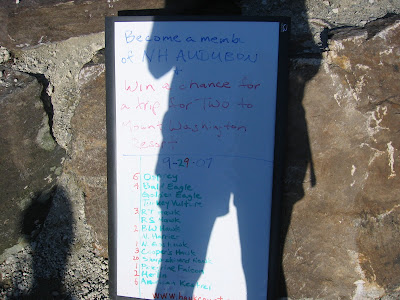 Become a member
of NH AUDUBON
Win a chance for
a trip for Two to
Mount Washington
Resort
9-29-07
6 Osprey
4 Bald Eagle
Golden Eagle
Turkey Vulture
3 RT Hawk
RS Hawk
2 BW Hawk
N. Harrier
1 Hawk
3 Cooper's Hawk
20 Sharpshinned Hawk
1 Peregrine Falcon
2 Merlin
6 American Kestrel